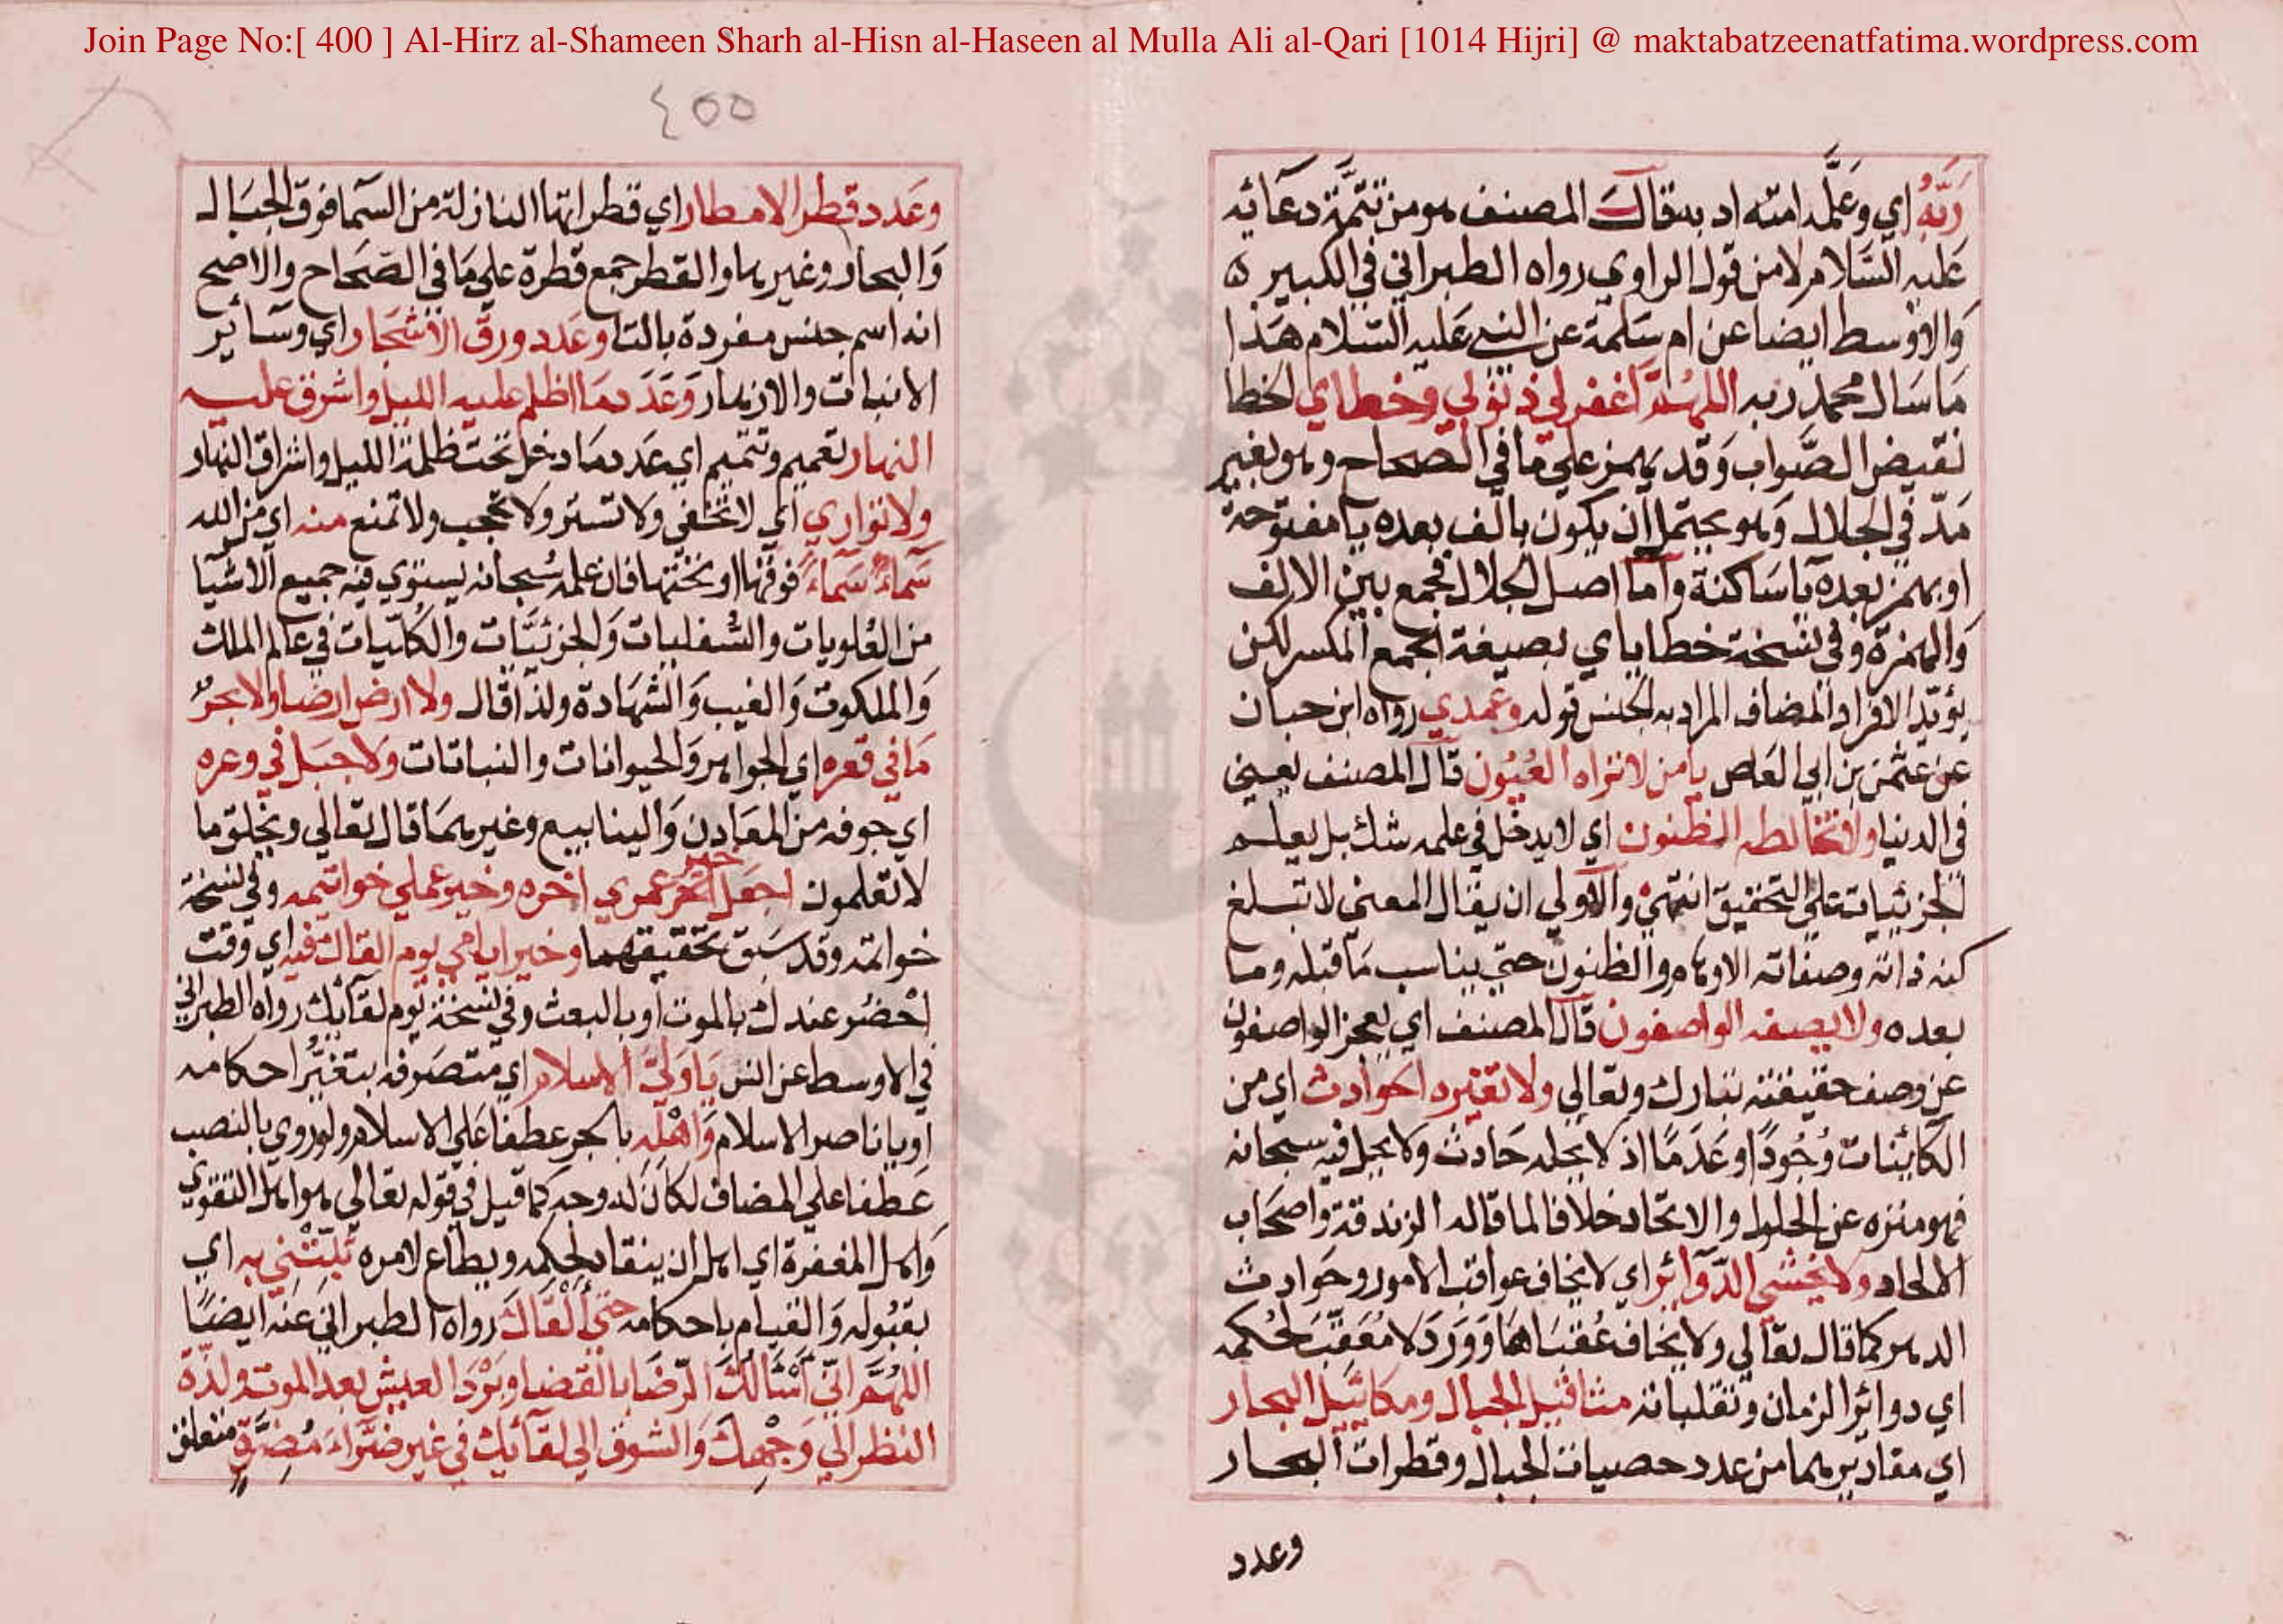 Join Page No:[ 400 ] Al-Hirz al-Shameen Sharh al-Hisn al-Haseen al Mulla Ali al-Qari [1014 Hijri] @ maktabatzeenatfatima.wordpress.com
٤٥٥
ربه اي وعلمه امته ادبه قال المصنف هو من تتمة دعائه
عليه السلام لا من قول الراوي رواه الطبراني في الكبير ه
والاوسط ايضا عن ام سلمة عن النبي عليه السلام هذا
ما سال محمد ربه اللهم اغفر لي ذنوبي وخطاي الخطا
نقيض الصواب وقد يهمز على ما في الصحاح وهو بغير
مد في الجلال وهو يحتمل ان يكون بالف بعده يا مفتوحة
او بهمز بعده يا ساكنة واما اصل الجلال فجمع بين الالف
والهمزة وفي نسخة خطاياي بصيغة الجمع المكسر لكن
يؤيد الافراد المضاف المراد به الجنس قوله وعمدي رواه ابن حبان
عن عثمن بن ابي العاص يا من لا تراه العيون قال المصنف يعني
في الدنيا ولا تخالطه الظنون اي لا يدخل في علمه شك بل يعلم
الجزئيات على التحقيق انتهى والاولى ان يقال المعنى لا تبلغ
كنه ذاته وصفاته الاوهام والظنون حتى يناسب ما قبله وما
بعده ولا يصفه الواصفون قال المصنف اي يعجز الواصفون
عن وصف حقيقته تبارك وتعالى ولا تغيره الحوادث اي من
الكائنات وجودا وعدما اذ لا يحله حادث ولا يحل فيه سبحانه
فهو منزه عن الحلول والاتحاد خلافا لما قاله الزندقة واصحاب
الالحاد ولا يخشى الدوائر اي لا يخاف عواقب الامور وحوادث
الدهر كما قال تعالى ولا يخاف عقباها وورد لا معقب لحكمه
اي دوائر الزمان وتقلباته مثاقيل الجبال ومكاييل البحار
اي مقاديرهما من عدد حصيات الجبال وقطرات البحار
وعدد
وعدد قطر الامطار اي قطراتها النازلة من السما فوق الجبال
والبحار وغيرها والقطر جمع قطرة على ما في الصحاح والاصح
انه اسم جنس مفردة بالتا وعدد ورق الاشجار اي وسائر
الانبات والازهار وعدد ما اظلم عليه الليل واشرق عليه
النهار تعميم وتتميم اي عدد ما دخل تحت ظلمة الليل واشراق النهار
ولا تواري اي لا تخفى ولا تستر ولا تحجب ولا تمنع منه اي من الله
سماء سماء فوقها او تحتها فان علمه سبحانه يستوي فيه جميع الاشيا
من العلويات والسفليات والجزئيات والكليات في عالم الملك
والملكوت والغيب والشهادة ولذا قال ولا ارض ارضا ولا بحر
ما في قعره اي الجواهر والحيوانات والنباتات ولا جبل في وعره
اي جوفه من المعادن والينابيع وغيرهما قال تعالى ويخلق ما
لا تعلمون اجعل خير عمري اخره وخير عملي خواتيمه وفي نسخة
خواتمه وقد سبق تحقيقهما وخير ايامي يوم القاك فيه اي وقت
احضر عندك بالموت او بالبعث وفي نسخة يوم لقائك رواه الطبراني
في الاوسط عن انس يا ولي الاسلام اي متصرفه بتغير احكامه
او يا ناصر الاسلام واهله بالجر عطفا على الاسلام ولو روي بالنصب
عطفا على المضاف لكان له وجه كما قيل في قوله تعالى هو اهل التقوى
واهل المغفرة اي اهل ان ينقاد لحكمه ويطاع لامره ثبتني به اي
بقبوله والقيام باحكامه حتى القاك رواه الطبراني عنه ايضا
اللهم اني اسالك الرضا بالقضا وبرد العيش بعد الموت ولذة
النظر الى وجهك والشوق الى لقائك في غير ضراء مضرة متعلق